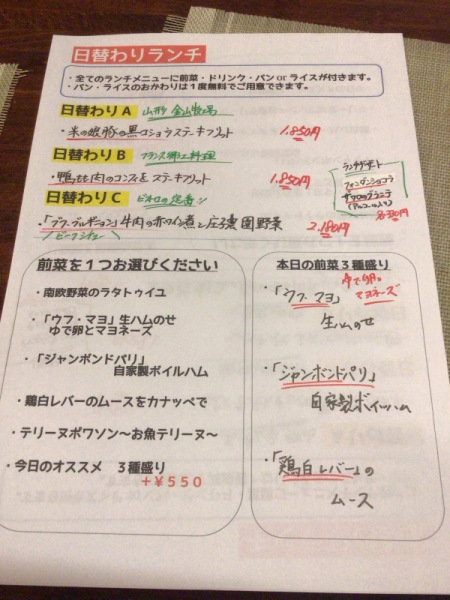 日替わりランチ
・全てのランチメニューに前菜・ドリンク・パン or ライスが付きます。
・パン・ライスのおかわりは１度無料でご用意できます。
日替わりA 山形 金山牧場
・米の娘豚の黒コショウステーキフリット 1.850円
日替わりB フランス郷土料理
・鴨モモ肉のコンフィを ステーキフリット 1.850円
ランチデザート
フォンダンショコラ
(アルコール入り)
日替わりC ビストロの定番!!
・「ブフ・ブルギニョン」牛肉の赤ワイン煮と広島農園野菜 2.180円
ビーフシチュー
前菜を１つお選びください
・南欧野菜のラタトゥイユ
・「ウフ・マヨ」生ハムのせ
ゆで卵とマヨネーズ
・「ジャンボンドパリ」
自家製ボイルハム
・鶏白レバーのムースをカナッペで
・テリーヌポワソン～お魚テリーヌ～
・今日のオススメ　３種盛り
＋￥５５０
本日の前菜３種盛り
・「ウフ・マヨ」 ゆで卵。マヨネーズ
生ハムのせ
・「ジャンボンドパリ」
自家製ボイルハム
・「鶏白レバー」の
ムース